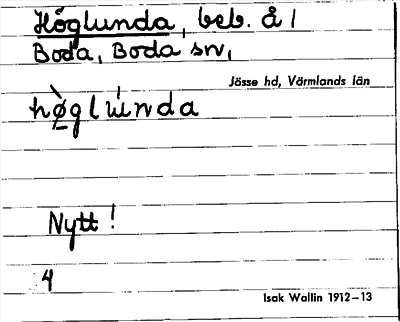 Höglunda, beb. å /
Boda, Boda sn,
Jösse hd, Värmlands län
hø̀glɯ́nda
Nytt!
4
Isak Wallin 1912–13